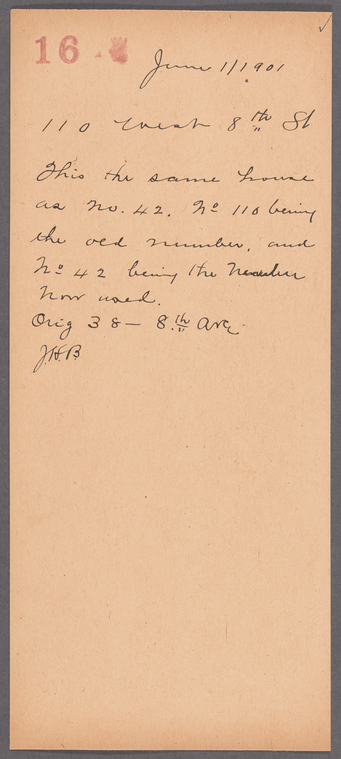 16
June 1/1901
110 West 8th St
This the same house
as No. 42. No 110 being
the old number, and
No 42 being the Number
Now used.
Orig 38 — 8th Ave.
J.H.B.